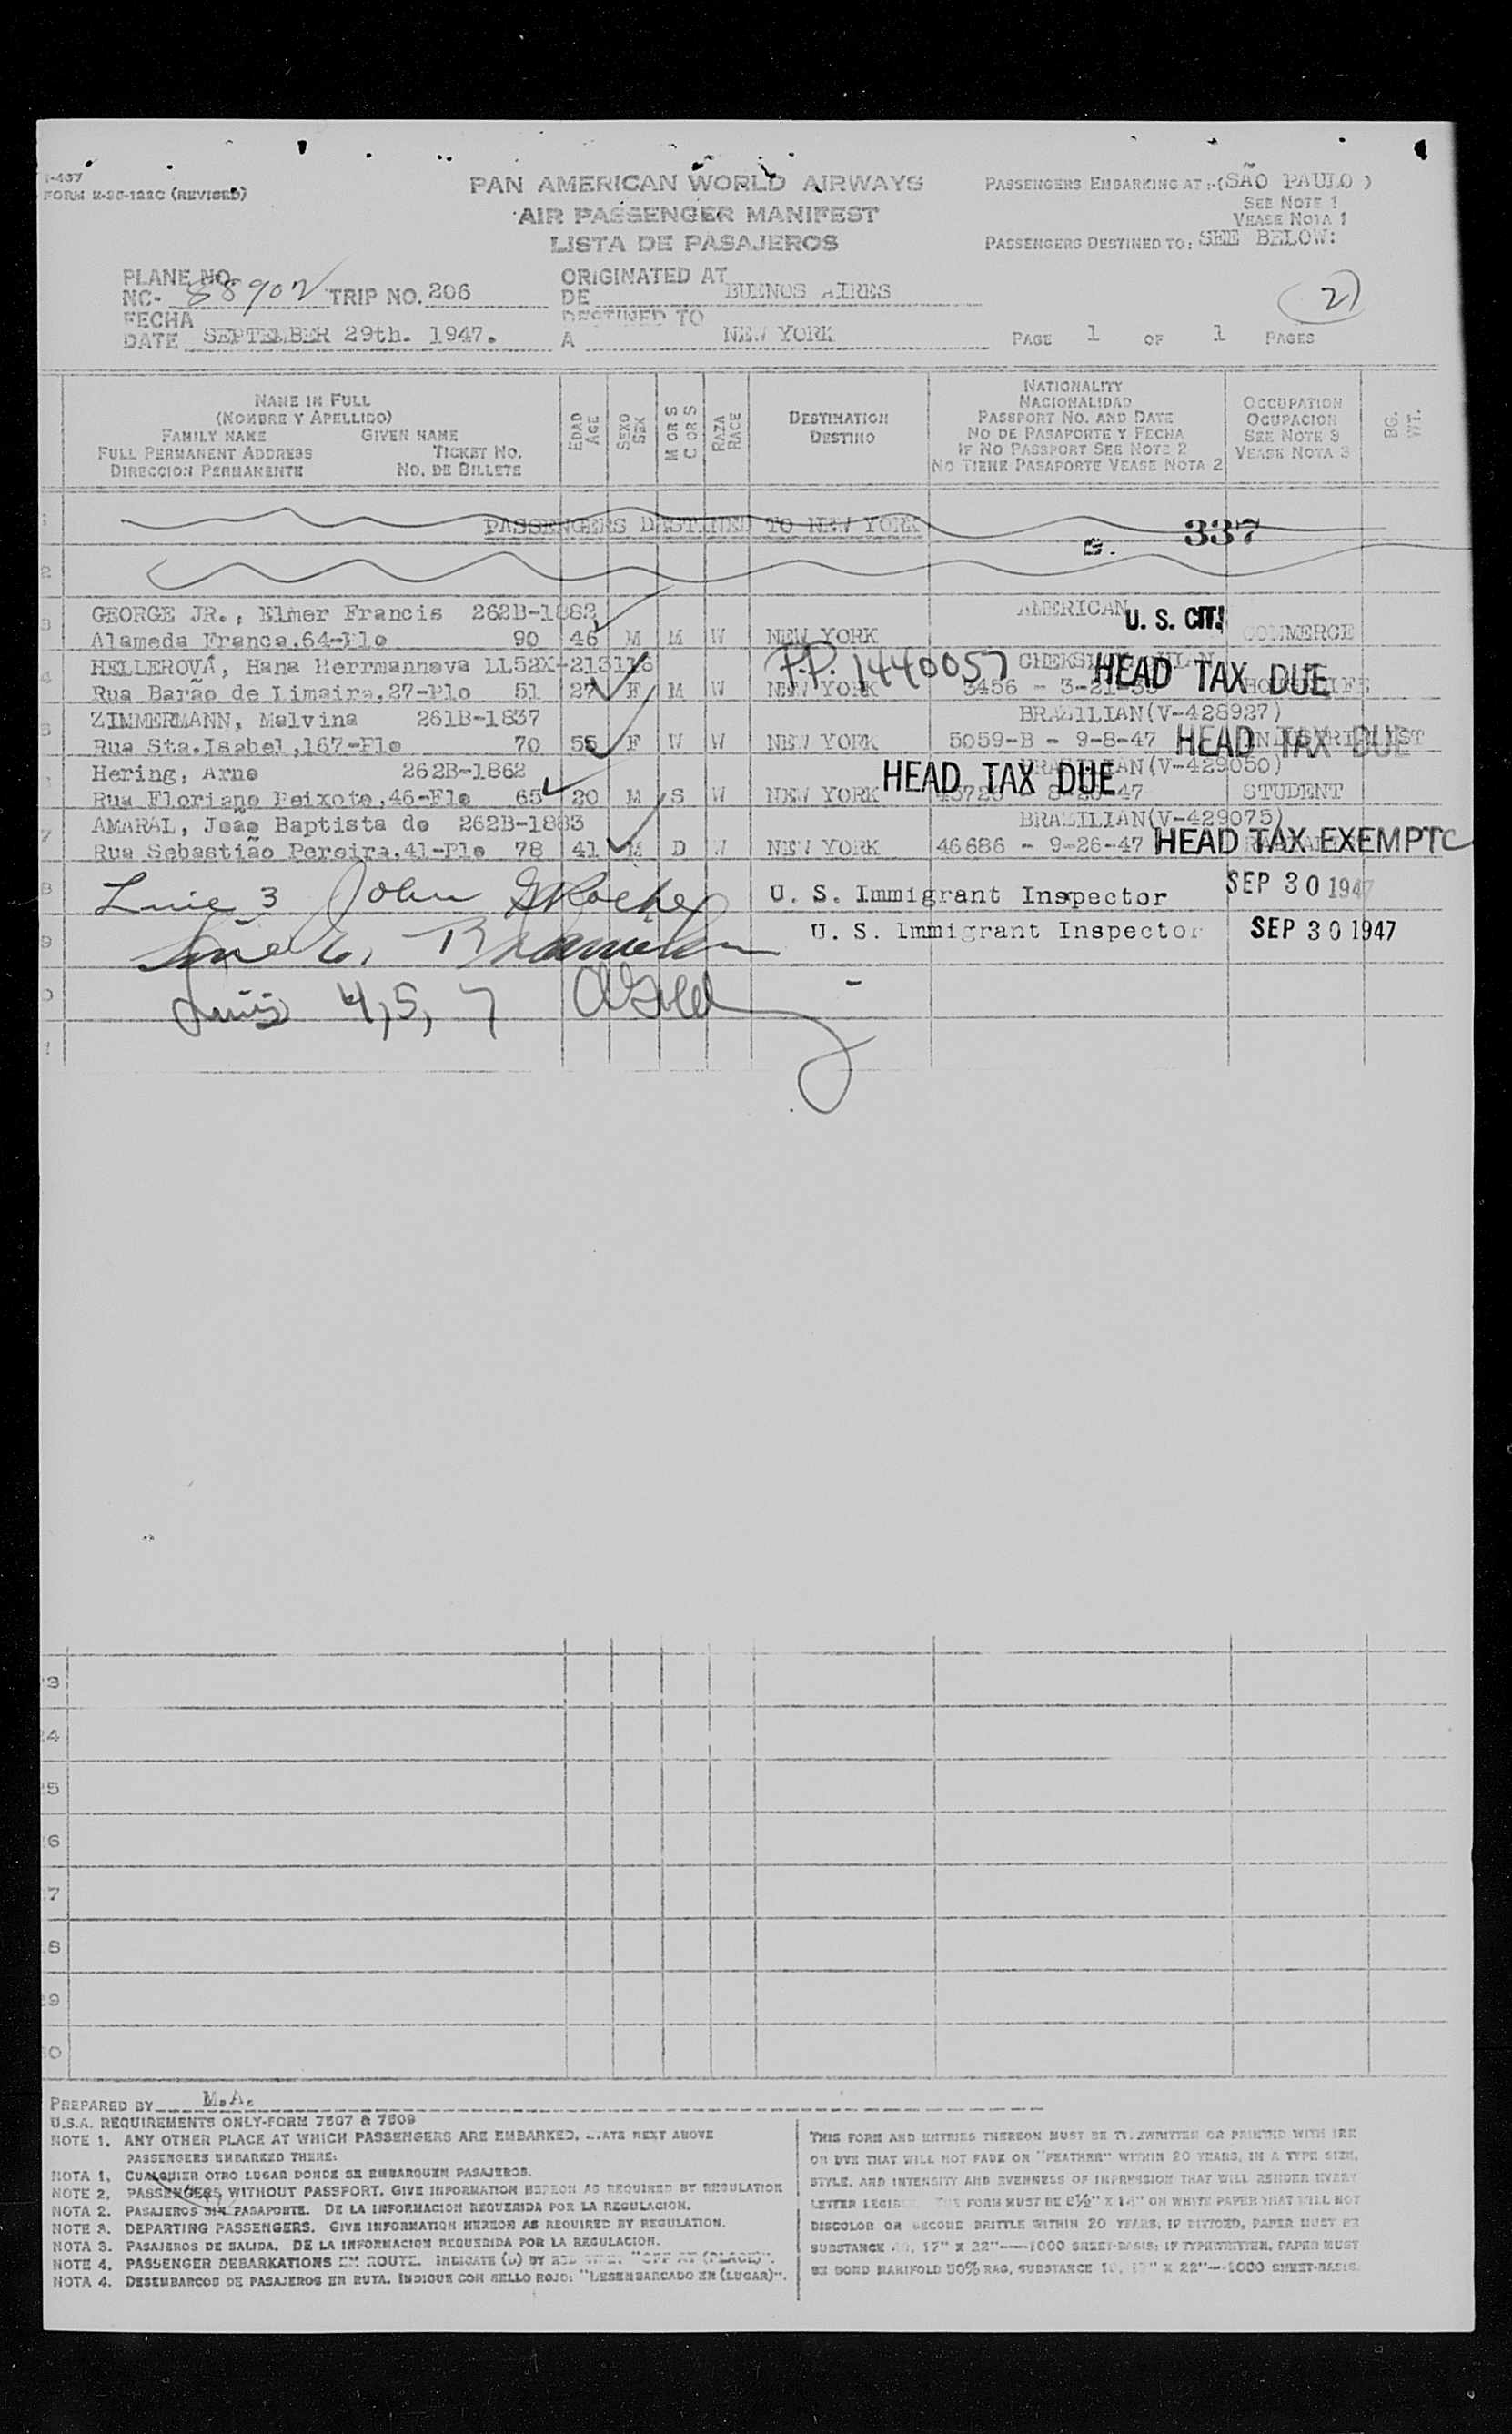 FORM (REVISED)
PAN AMERICAN WORLD AIRWAYS
AIR PASSENGER MANIFEST
LISTA DE PASAJEROS
PASSENGERS EMBARKING AT:-(SÃO PAULO)
SEE NOTE 1
VEASE NOTA 1
PASSENGERS DESTINED TO: SEE BELOW:
PLANE NO.
NC- 88902 TRIP NO. 206
ORIGINATED AT
DE BUENOS AIRES
2
FECHA
DATE SEPTEMBER 29th. 1947.
DESTINED TO
A NEW YORK
PAGE 1 OF 1 PAGES
NAME IN FULL
(NOMBRE Y APELLIDO)
FAMILY NAME GIVEN NAME
FULL PERMANENT ADDRESS TICKET NO.
DIRECCION PERMANENTE NO. DE BILLETE
EDAD
AGE
SEXO
SEX
M OR S
C OR S
RAZA
RACE
DESTINATION
DESTINO
NATIONALITY
NACIONALIDAD
PASSPORT NO. AND DATE
NO DE PASAPORTE Y FECHA
IF NO PASSPORT SEE NOTE 2
NO TIENE PASAPORTE VEASE NOTA 2
OCCUPATION
OCUPACION
SEE NOTE 3
VEASE NOTA 3
BG.
WT.
PASSENGERS DESTINED TO NEW YORK
337
GEORGE JR., Elmer Francis 262B-1882 AMERICAN U. S. CIT.
Alameda Franca,64-Plo 90 46 M M W NEW YORK COMMERCE
HELLEROVÁ, Hana Herrmannova LL52X-213116 P.P. 1440057 HEAD TAX DUE
Rua Barão de Limeira,27-Plo 51 27 F M W NEW YORK 3456
ZIMMERMANN, Malvina 261B-1837 BRAZILIAN(V-428927)
Rua Sta.Isabel,167-Plo 70 55 F W W NEW YORK 5059-B - 9-8-47 HEAD TAX DUE
Hering, Arno 262B-1862 HEAD TAX DUE BRAZILIAN(V-429050)
Rua Floriano Peixoto,46-Plo 65 20 M S W NEW YORK STUDENT
AMARAL, João Baptista de 262B-1883 BRAZILIAN(V-429075)
Rua Sebastião Pereira,41-Plo 78 41 M D W NEW YORK 46686 - 9-26-47 HEAD TAX EXEMPT
Line 3 John Roche U. S. Immigrant Inspector SEP 30 1947
Line 6, U. S. Immigrant Inspector SEP 30 1947
Lines 4,5,7
PREPARED BY M.A.
U.S.A. REQUIREMENTS ONLY-FORM 7507 & 7509
NOTE 1. ANY OTHER PLACE AT WHICH PASSENGERS ARE EMBARKED, STATE NEXT ABOVE
PASSENGERS EMBARKED THERE:
NOTA 1. CUALQUIER OTRO LUGAR DONDE SE EMBARQUEN PASAJEROS.
NOTE 2. PASSENGERS WITHOUT PASSPORT. GIVE INFORMATION HEREON AS REQUIRED BY REGULATION
NOTA 2. PASAJEROS SIN PASAPORTE. DE LA INFORMACION REQUERIDA POR LA REGULACION.
NOTE 3. DEPARTING PASSENGERS. GIVE INFORMATION HEREON AS REQUIRED BY REGULATION.
NOTA 3. PASAJEROS DE SALIDA. DE LA INFORMACION REQUERIDA POR LA REGULACION.
NOTE 4. PASSENGER DEBARKATIONS EN ROUTE. INDICATE "OFF AT (PLACE)".
NOTA 4. DESEMBARCOS DE PASAJEROS EN RUTA. INDIQUE CON SELLO ROJO: "DESEMBARCADO EN (LUGAR)".
THIS FORM AND ENTRIES THEREON MUST BE TYPEWRITTEN OR PRINTED WITH INK
OR DYE THAT WILL NOT FADE OR "FEATHER" WITHIN 20 YEARS, IN A TYPE SIZE,
STYLE, AND INTENSITY AND EVENNESS OF IMPRESSION THAT WILL RENDER EVERY
LETTER LEGIBLE. THE FORM MUST BE 8½" X 14" ON WHITE PAPER THAT WILL NOT
DISCOLOR OR BECOME BRITTLE WITHIN 20 YEARS. IF PAPER MUST BE
SUBSTANCE 17" X 22"—1000 SHEET-BASIS; IF TYPEWRITTEN, PAPER MUST
BE BOND MANIFOLD 50% RAG, SUBSTANCE 17" X 22"—1000 SHEET-BASIS.